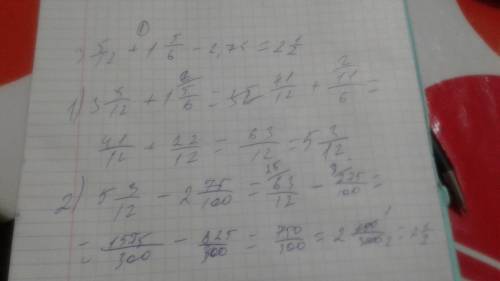 ①
3 5/12 + 1 5/6 - 2,75 = 2 1/2
1) 3 5/12 + 1 5/6 = 41/12 + 11/6 =
41/12 + 22/12 = 63/12 = 5 3/12
2) 5 3/12 - 2 75/100 = 63/12 - 275/100 =
= 1575/300 - 825/300 = 750/300 = 2 150/300 = 2 1/2